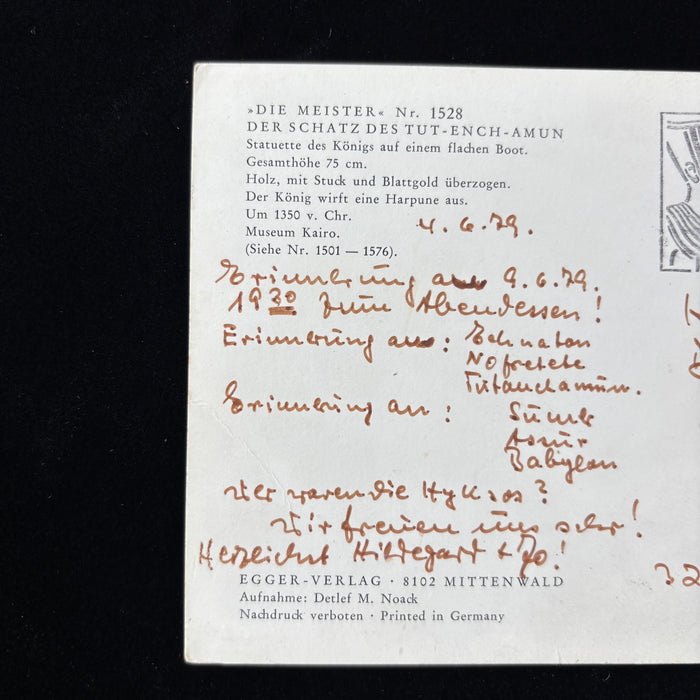 »DIE MEISTER« Nr. 1528
DER SCHATZ DES TUT-ENCH-AMUN
Statuette des Königs auf einem flachen Boot.
Gesamthöhe 75 cm.
Holz, mit Stuck und Blattgold überzogen.
Der König wirft eine Harpune aus.
Um 1350 v. Chr.
Museum Kairo.
(Siehe Nr. 1501 — 1576).
4. 6. 79.
Erinnerung an 9. 6. 79.
19 30 zum Abendessen!
Erinnerung an: Echnaton
Nofretete
Tutanchamun.
Erinnerung an: Sumer
Assur
Babylon
Wer waren die Hyksos?
Wir freuen uns sehr!
Herzlichst Hildegard + Jo!
EGGER-VERLAG · 8102 MITTENWALD
Aufnahme: Detlef M. Noack
Nachdruck verboten · Printed in Germany
32